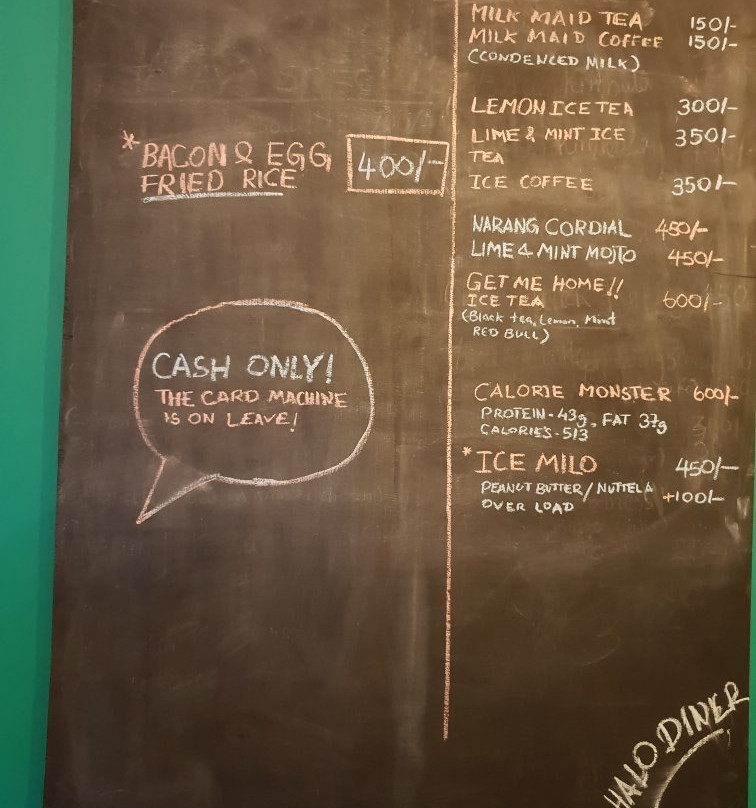 * BACON & EGG
FRIED RICE
400/-
CASH ONLY!
THE CARD MACHINE
IS ON LEAVE!
MILK MAID TEA 150/-
MILK MAID COFFEE 150/-
(CONDENCED MILK)
LEMON ICE TEA 300/-
LIME & MINT ICE 350/-
TEA
ICE COFFEE 350/-
NARANG CORDIAL 450/-
LIME & MINT MOJTO 450/-
GET ME HOME!!
ICE TEA 600/-
(Black tea, Lemon, Mint
RED BULL)
CALORIE MONSTER 600/-
PROTEIN-43g, FAT 37g
CALORIES-513
*ICE MILO 450/-
PEANUT BUTTER/NUTTELA +100/-
OVER LOAD
HALO DINER